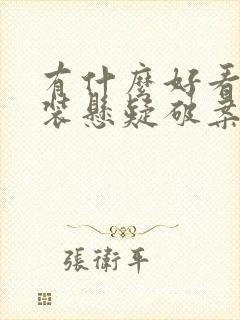 有什麼好看
裝懸疑破案
張衛平